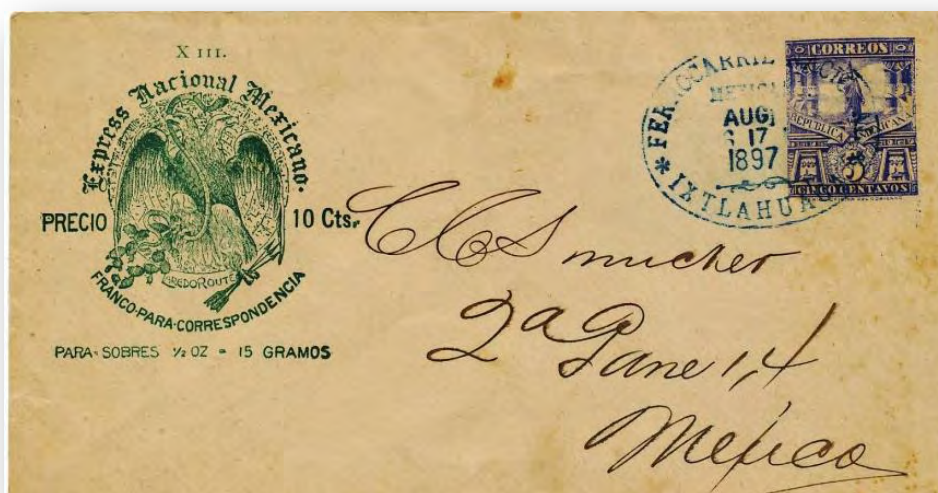 X III.
Express Nacional Mexicano.
PRECIO 10 Cts.
LAREDO ROUTE
FRANCO-PARA-CORRESPONDENCIA
PARA-SOBRES ½ OZ = 15 GRAMOS
FERROCARRIL
AUG
17
1897
* IXTLAHUACA
CORREOS
REPUBLICA MEXICANA
5
CINCO CENTAVOS
mucher
2a
14
Mexico